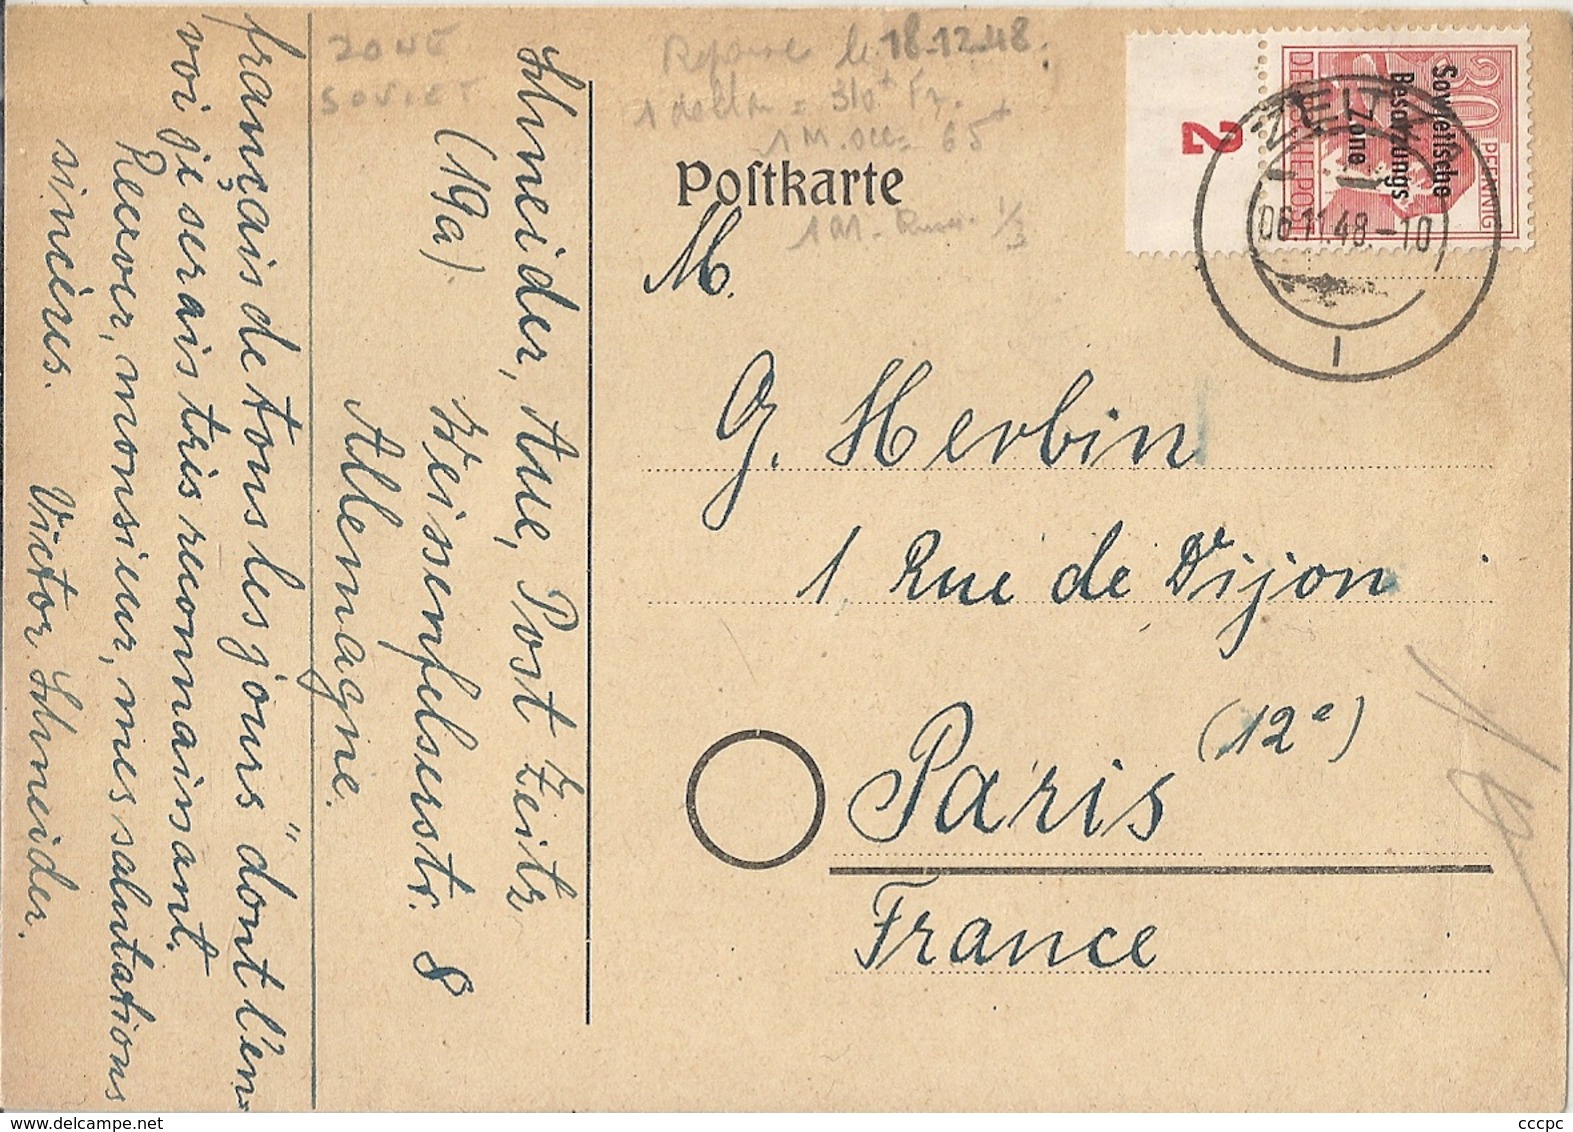 ZONE
SOVIET
Reponse le 18.12.48.
310 Fr.
65
Postkarte
1/3
2
30 PFENNIG
DEUTSCHE POST
Sowjetische
Besatzungs
Zone
ZEITZ
06.11.48.-10
1
M.
G. Herbin
1, Rue de Dijon
Paris (12e)
France
Schneider, Aue, Post Zeitz
(19a) Weissenfelserstr. 8
Allemagne.
français de tous les jours" dont l'en-
voi je serais très reconnaissant.
Recevez, monsieur, mes salutations
sincères. Victor Schneider.
cccpc